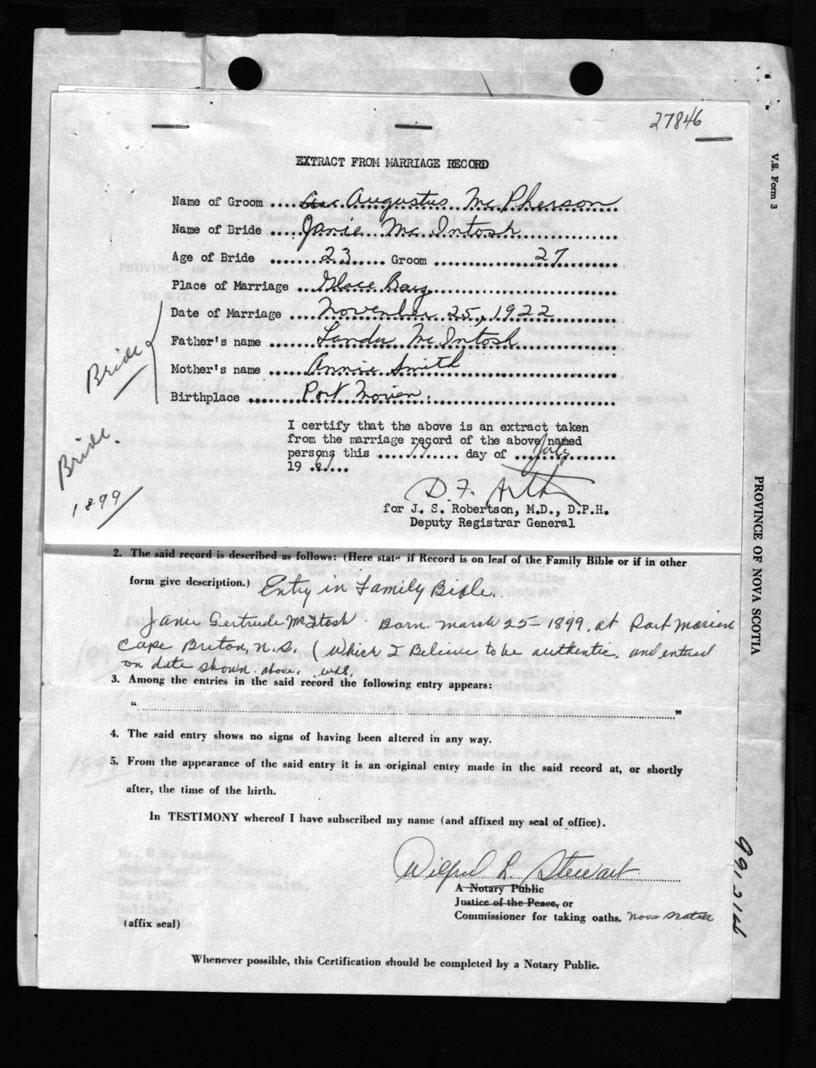 27846
V.S. Form 3
EXTRACT FROM MARRIAGE RECORD
Name of Groom .... Augustus Mc Pherson
Name of Bride .... Janie Mc Intosh
Age of Bride ....... 23 ..... Groom ............ 27
Place of Marriage .. Glace Bay
Date of Marriage ... November 25, 1922
Father's name ...... Landa Mc Intosh
Mother's name ...... Annie Smith
Birthplace ... Port Morien.
Bride
Bride.
1899
I certify that the above is an extract taken
from the marriage record of the above named
persons this .... 17 .... day of .... July
19 61....
D. F.
for J. S. Robertson, M.D., D.P.H.
Deputy Registrar General
PROVINCE OF NOVA SCOTIA
2. The said record is described as follows: (Here state if Record is on leaf of the Family Bible or if in other
form give description.) Entry in Family Bible.
Janie Gertrude McIntosh Born March 25 - 1899. at Port Morien
Cape Breton, N.S. (Which I Believe to be authentic, and entered
on date shown above.
3. Among the entries in the said record the following entry appears:
"............"
4. The said entry shows no signs of having been altered in any way.
5. From the appearance of the said entry it is an original entry made in the said record at, or shortly
after, the time of the birth.
In TESTIMONY whereof I have subscribed my name (and affixed my seal of office).
Wilfred L. Stewart
A Notary Public
Justice of the Peace, or
Commissioner for taking oaths. Nova Scotia
(affix seal)
Whenever possible, this Certification should be completed by a Notary Public.